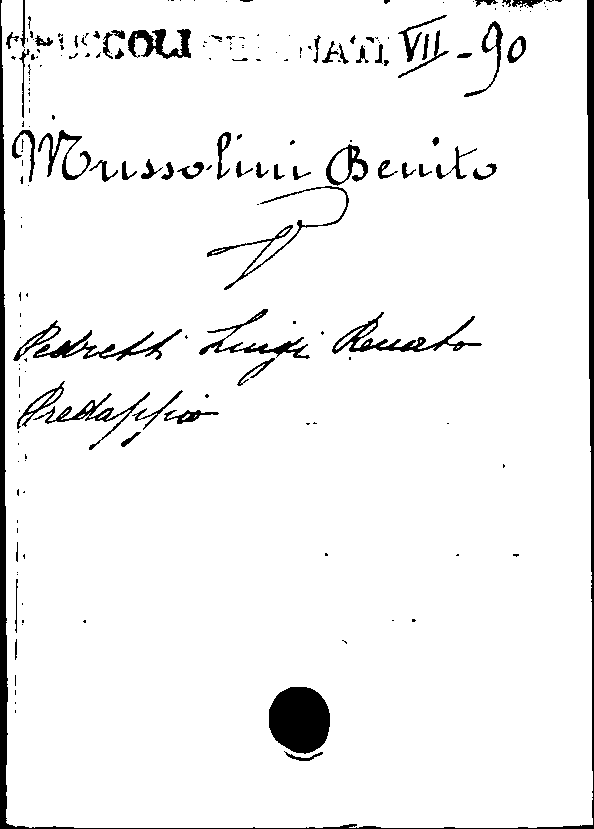 OPUSCOLI CESENATI VII-90
Mussolini Benito
V
Pedretti Luigi Renato
Predappio